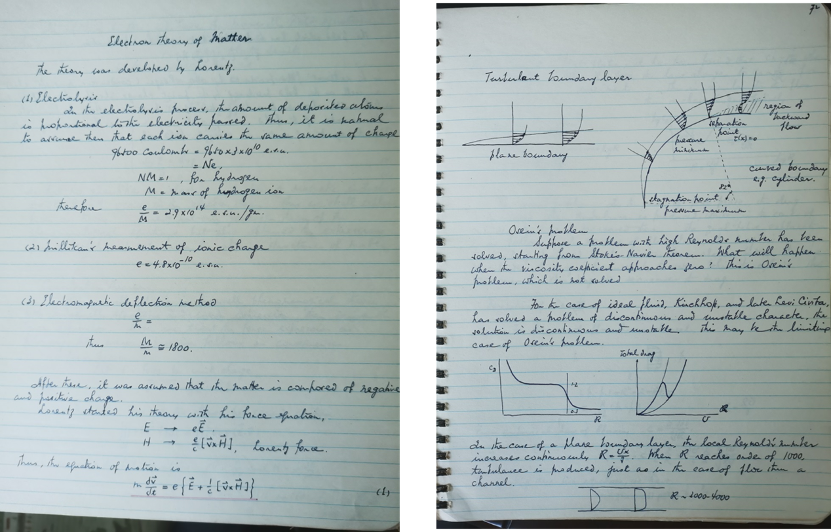 Electron theory of Matter
The theory was developed by Lorentz.
(1) Electrolysis
In the electrolysis process, the amount of deposited atoms
is proportional to the electricity passed. Thus, it is natural
to assume then that each ion carries the same amount of charge
96500 Coulombs = 9650 x 3 x 10^10 e.s.u.
= Ne,
NM = 1, for hydrogen
M = mass of hydrogen ion
therefore e/M = 2.9 x 10^14 e.s.u./gr.
(2) Millikan's measurement of ionic charge
e = 4.8 x 10^-10 e.s.u.
(3) Electromagnetic deflection method
e/m =
thus M/m ≅ 1800.
After these, it was assumed that the matter is composed of negative
and positive charge.
Lorentz started his theory with his force equation,
E → eE⃗.
H → e/c [v⃗×H⃗], Lorentz force.
Thus, the equation of motion is
m dv⃗/dt = e{E⃗ + 1/c [v⃗×H⃗]}
(1)
72
Turbulent boundary layer
plane boundary
region of
backward
flow
separation
point
pressure
minimum
curved boundary
e.g. cylinder.
stagnation point
pressure maximum
Osein's problem
Suppose a problem with high Reynold's number has been
solved, starting from Stoke's Navier theorem. What will happen
when the viscosity coeficient approaches zero? This is Osein's
problem, which is not solved
For the case of ideal fluid, Kirchhoff, and late Levi Civita,
has solved a problem of discontinuous and unstable character, the
solution is discontinuous and unstable. This may be the limiting
case of Osein's problem.
Total drag
R
U
In the case of a plane boundary layer, the local Reynold's number
increases continuously R = Ux/ν. When R reaches order of 1000,
turbulance is produced, just as in the case of flow thru a
channel.
R ~ 1000-4000